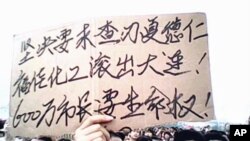 坚决要求查办夏德仁
福佳化工滚出大连！
600万市民要生命权！
AP